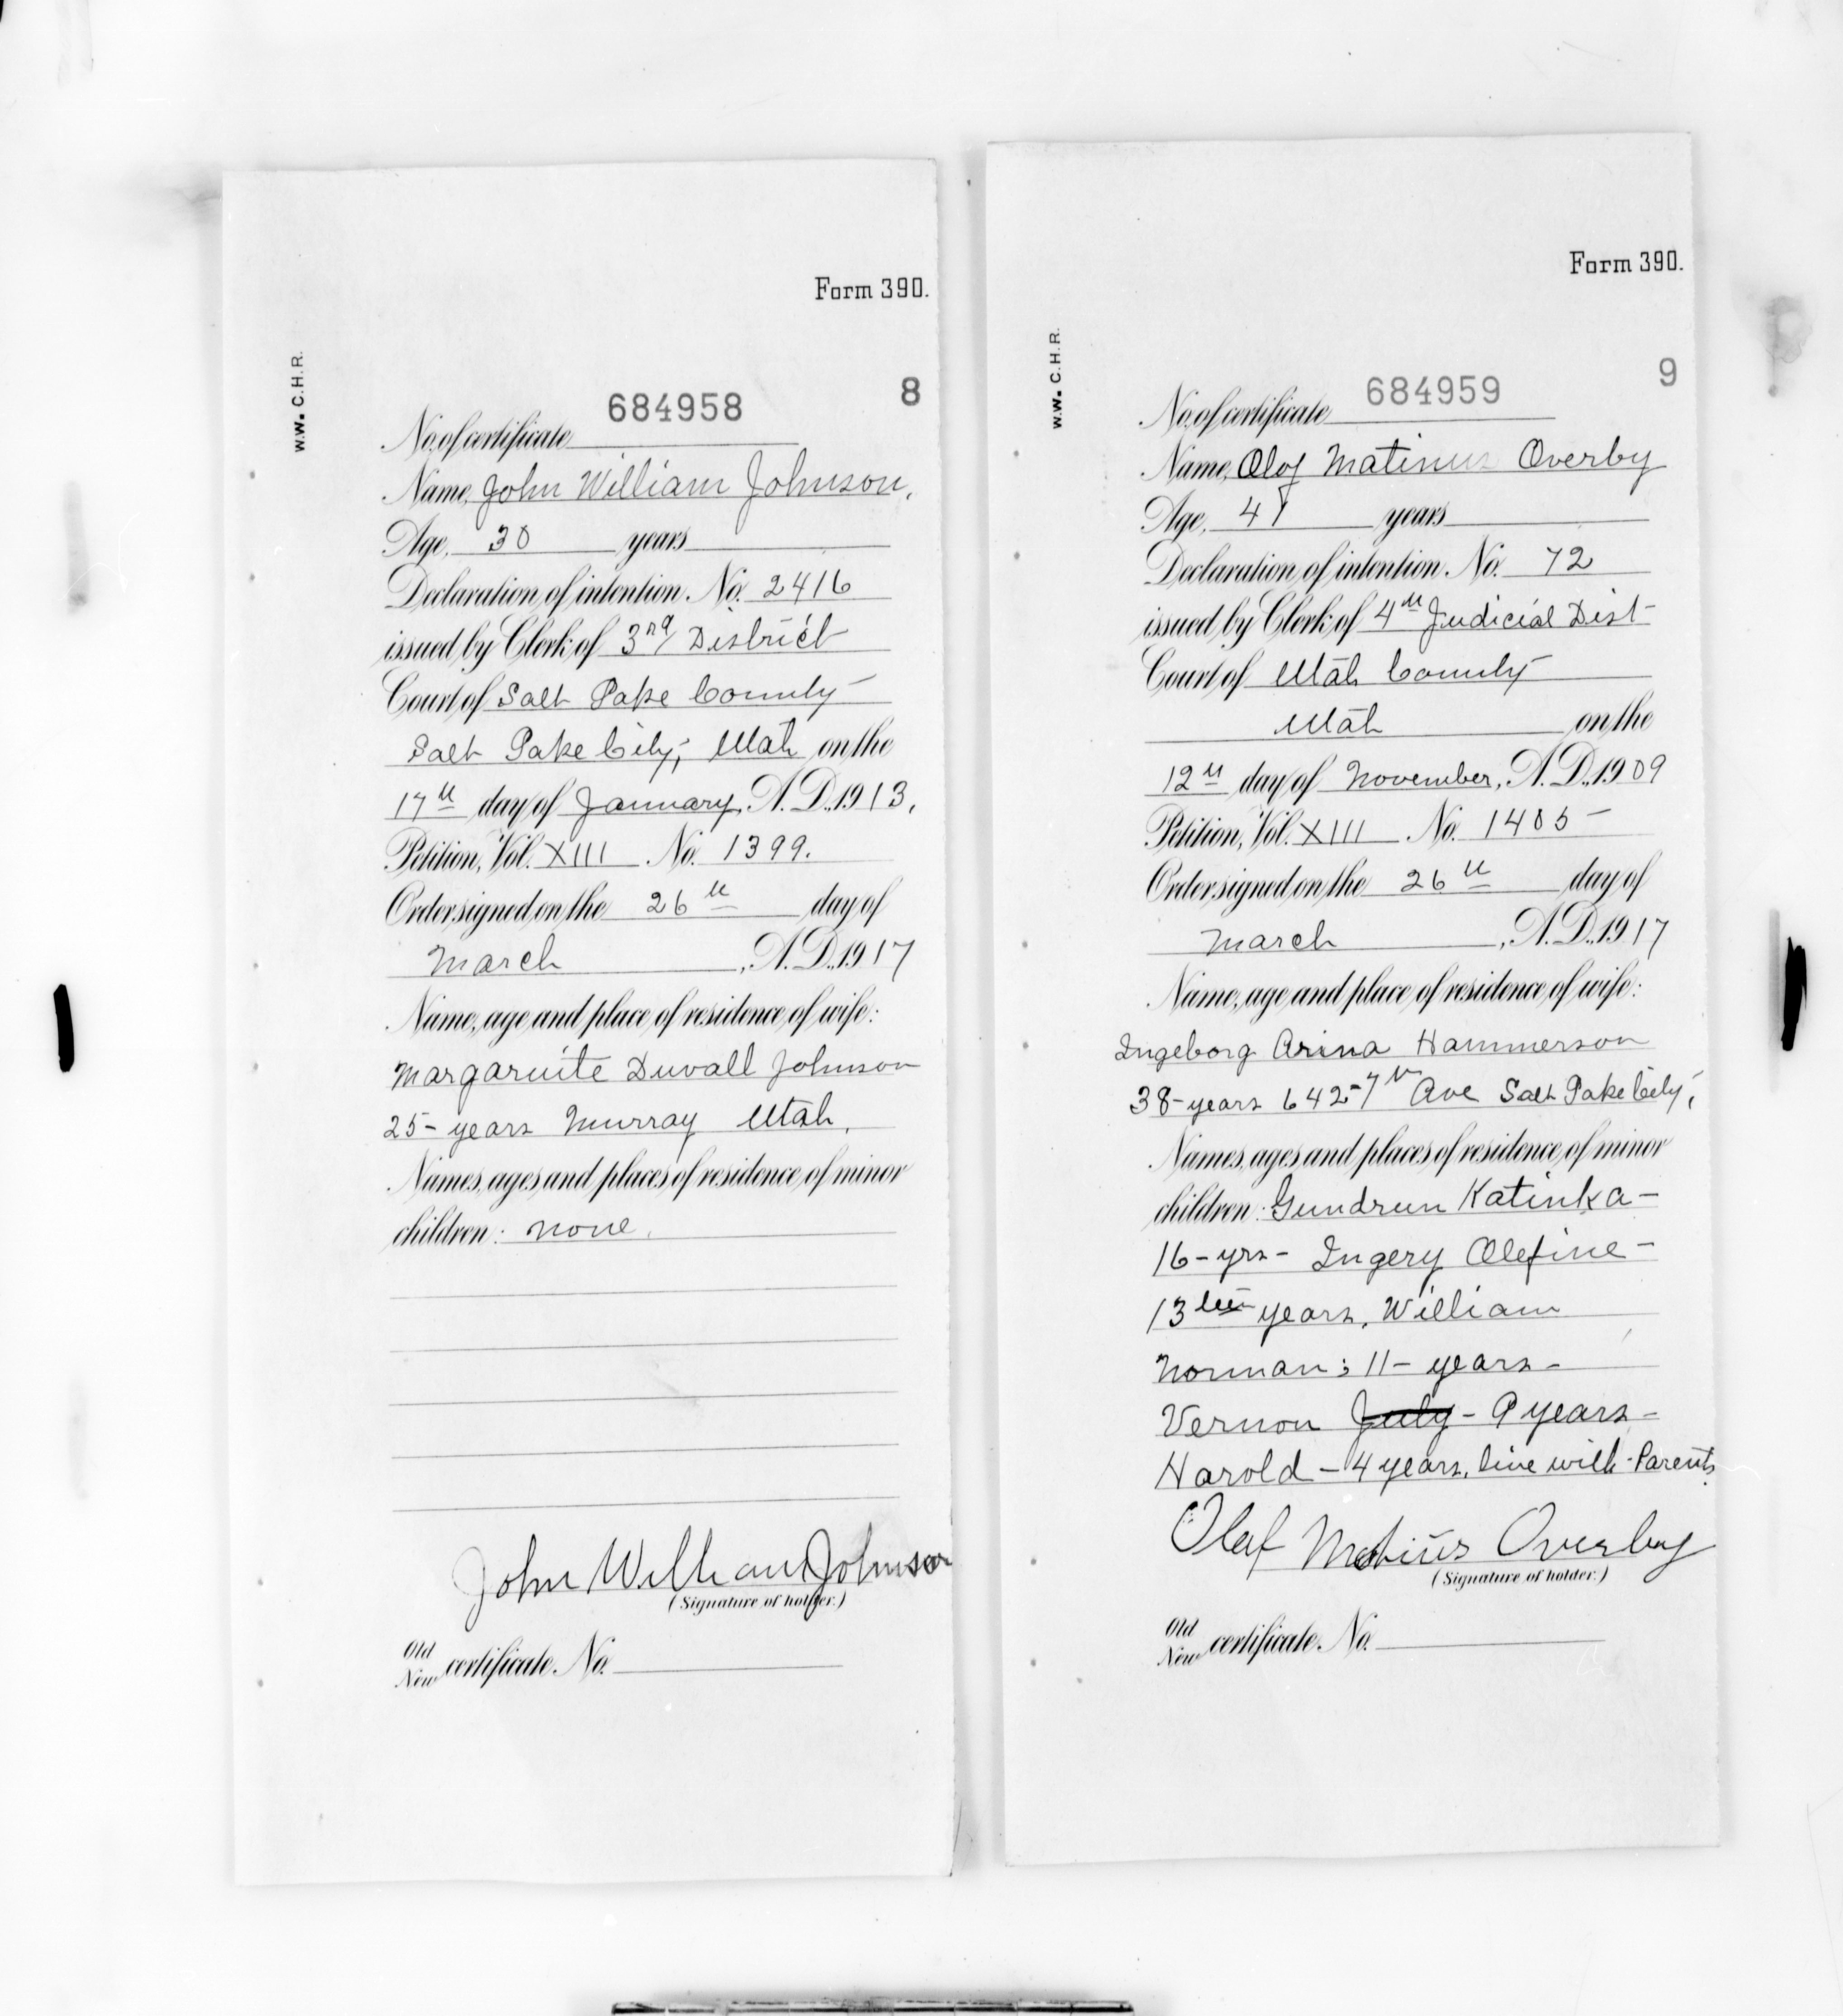 Form 390.
W.W. C.H.R.
8
No. of certificate 684958
Name, John William Johnson,
Age, 30 years
Declaration of intention. No. 2416
issued by Clerk of 3rd District
Court of Salt Lake County
Salt Lake City, Utah on the
17th day of January, A.D., 1913,
Petition, Vol. XIII No. 1399.
Order signed on the 26th day of
March, A.D., 1917
Name, age and place of residence of wife:
Margaruite Duvall Johnson
25- years Murray Utah.
Names, ages and places of residence of minor
children: none.
John William Johnson
(Signature of holder.)
Old
New certificate. No.
Form 390.
W.W. C.H.R.
9
No. of certificate 684959
Name, Olof Matinus Overby
Age, 41 years
Declaration of intention. No. 72
issued by Clerk of 4th Judicial Dist-
Court of Utah County
Utah on the
12th day of November, A.D., 1909
Petition, Vol. XIII No. 1405-
Order signed on the 26th day of
March, A.D., 1917
Name, age and place of residence of wife:
Ingeborg Arina Hammerson
38-years 642-7th Ave Salt Lake City,
Names, ages and places of residence of minor
children: Gundrun Katinka-
16-yrs- Ingery Olefine-
13 years, William
Norman; 11- years-
Vernon July- 9 years-
Harold-4 years, live with-Parents.
Olaf Overby
(Signature of holder.)
Old
New certificate. No.